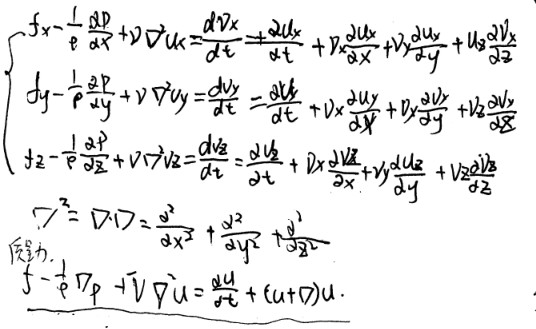 fx - 1/ρ ∂P/∂x + ν∇²ux = dvx/dt = ∂ux/∂t + vx ∂ux/∂x + vy ∂ux/∂y + uz ∂vx/∂z
fy - 1/ρ ∂P/∂y + ν∇²vy = dvy/dt = ∂vy/∂t + vx ∂uy/∂x + vy ∂vy/∂y + vz ∂vy/∂z
fz - 1/ρ ∂P/∂z + ν∇²vz = dvz/dt = ∂vz/∂t + vx ∂vz/∂x + vy ∂uz/∂y + vz ∂vz/∂z
∇² = ∇·∇ = ∂²/∂x² + ∂²/∂y² + ∂²/∂z²
质量力.
f - 1/ρ ∇p + ν∇²u = ∂u/∂t + (u+∇)u.